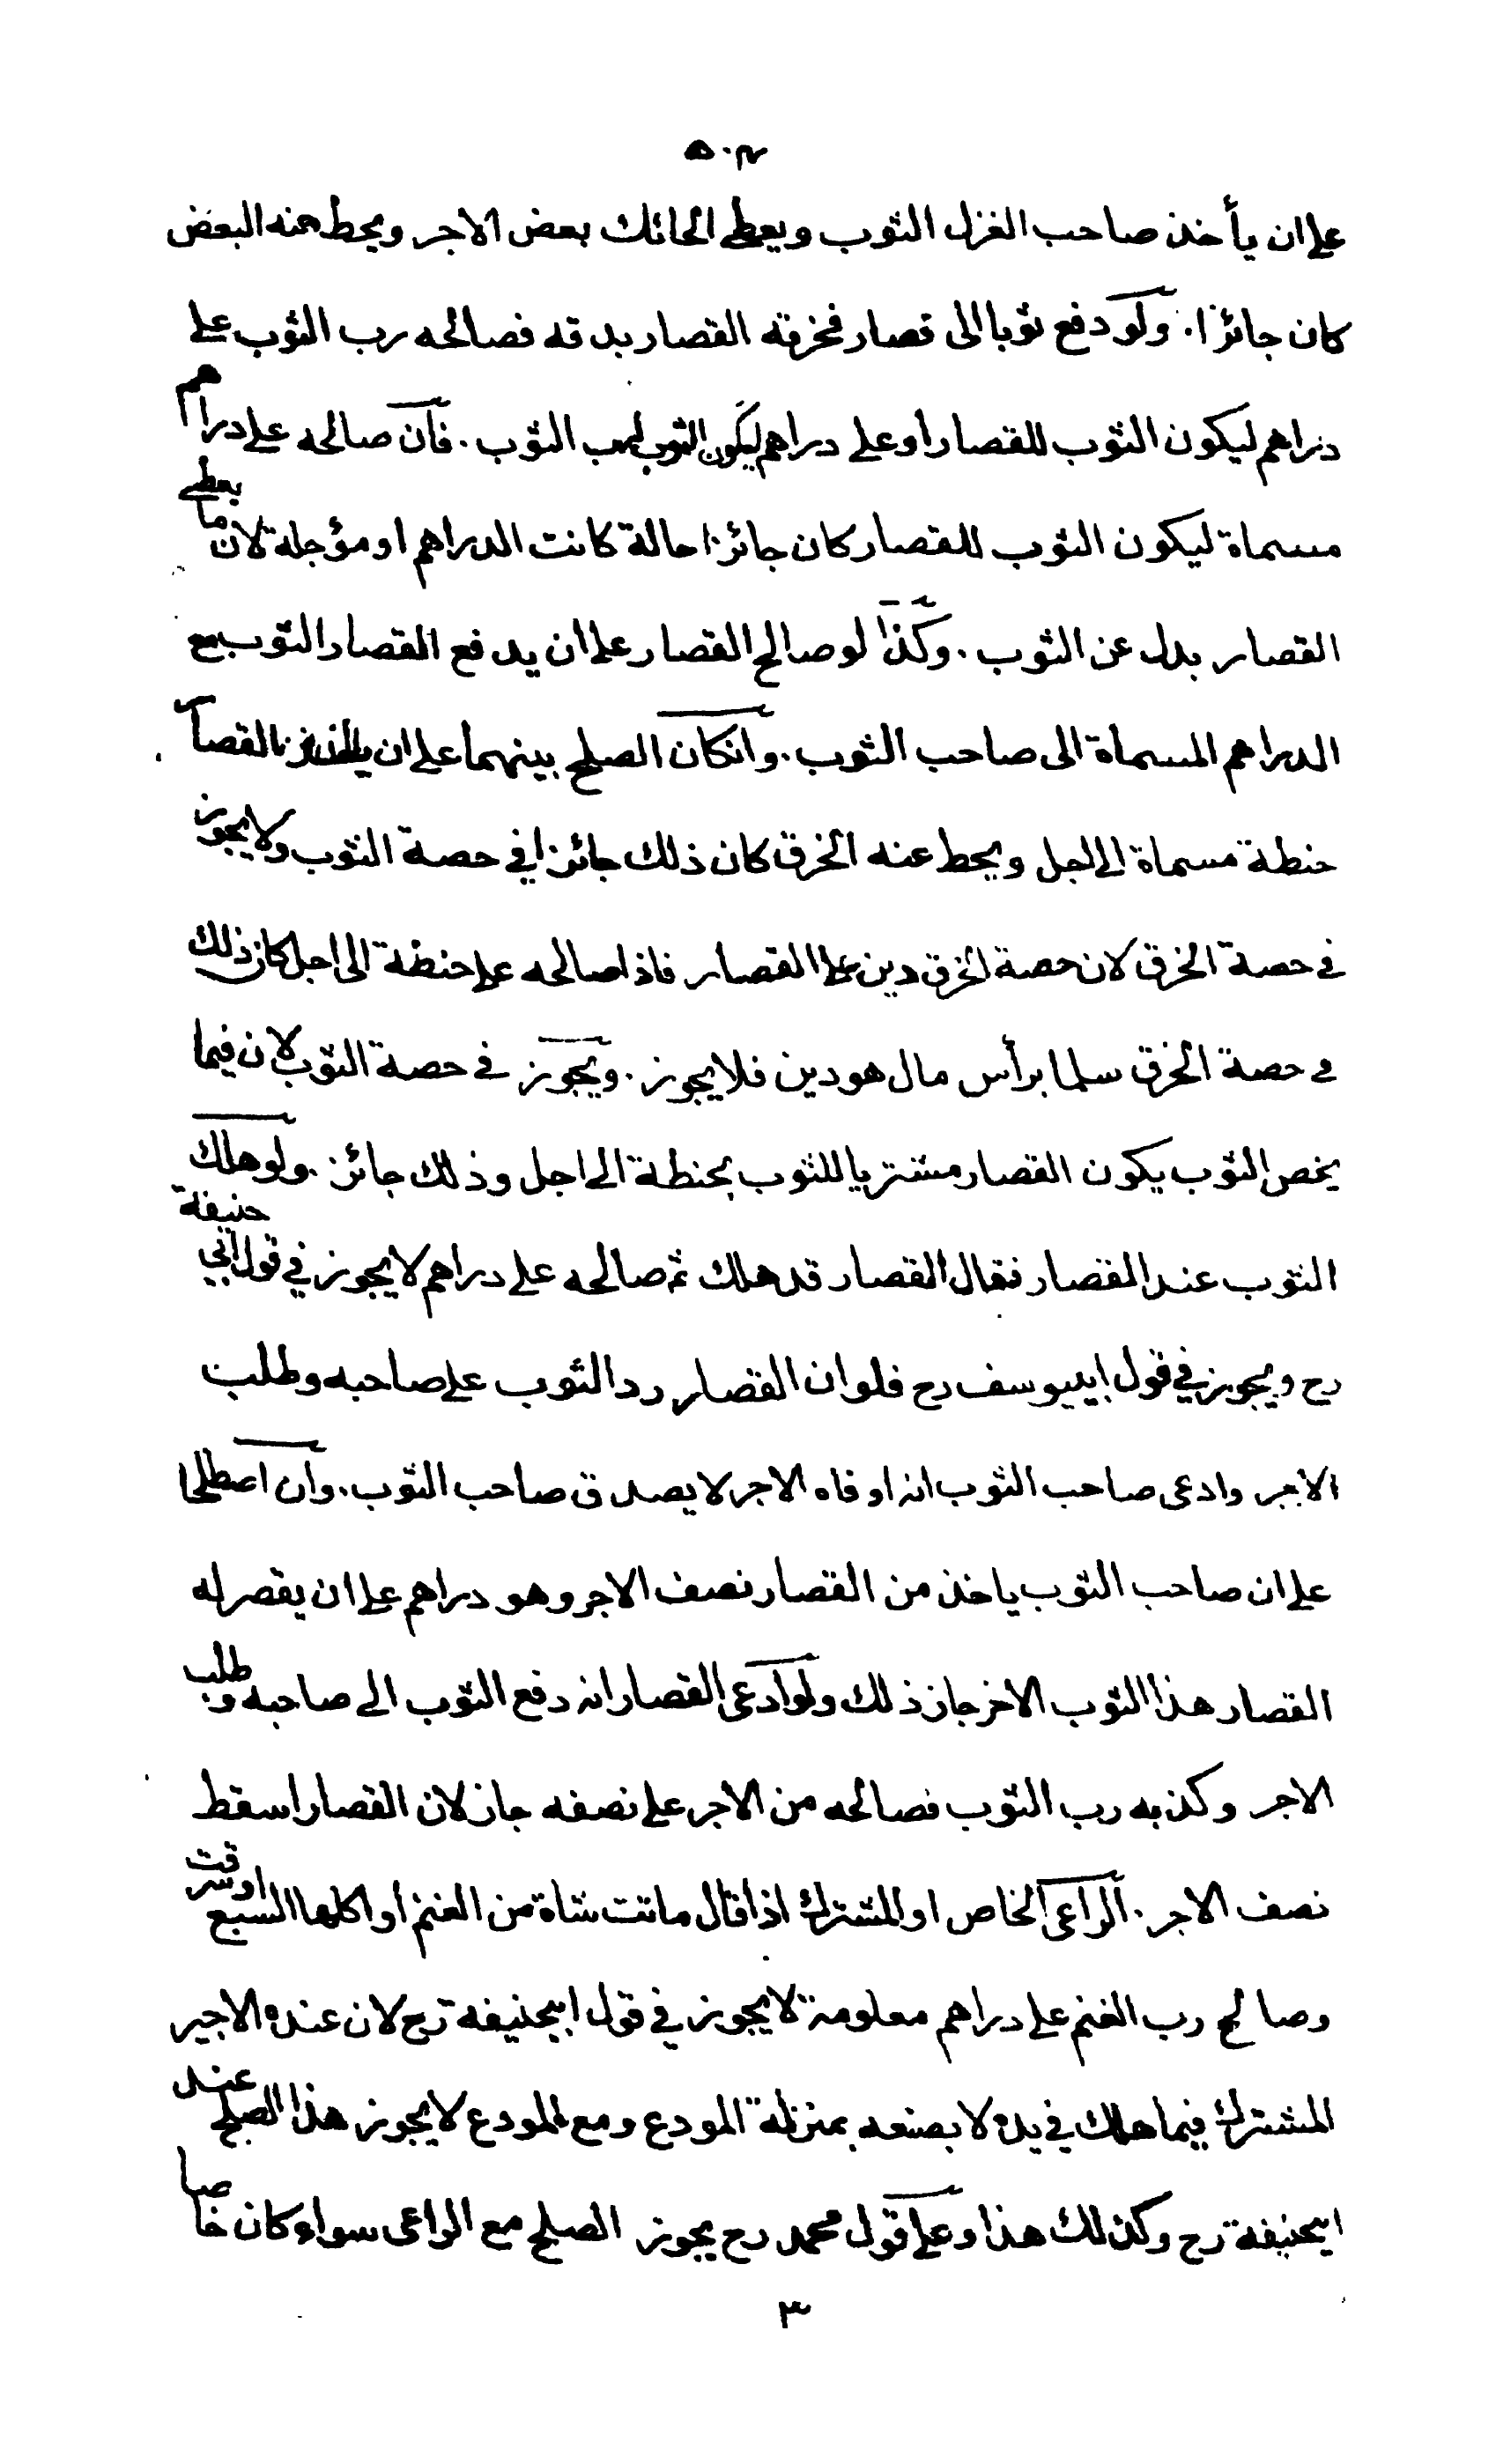 ٥٠٣
على ان يأخذ صاحب الغزل الثوب ويعطى الحائك بعض الاجر ويحط عنه البعض
كان جائزا . ولو دفع ثوبا الى قصار فخرقه القصار بدقه فصالحه رب الثوب على
دراهم ليكون الثوب للقصار او على دراهم ليكون الثوب لرب الثوب . فان صالحه على دراهم
مسماة ليكون الثوب للقصار كان جائزا حالة كانت الدراهم او مؤجلة لان ما يعطى
القصار بدل عن الثوب . وكذا لو صالح القصار على ان يدفع القصار الثوب مع
الدراهم المسماة الى صاحب الثوب . وانكان الصلح بينهما على ان القصار
حنطة مسماة الى اجل ويحط عنه الخرق كان ذلك جائزا في حصة الثوب ولا يجوز
في حصة الخرق لان حصة الخرق دين على القصار فاذا صالحه على حنطة الى اجل كان ذلك
في حصة الخرق سلما برأس مال هو دين فلا يجوز . ويجوز في حصة الثوب لان فيما
يخص الثوب يكون القصار مشتريا للثوب بحنطة الى اجل وذلك جائز . ولو هلك
الثوب عند القصار فقال القصار قد هلك ثم صالحه على دراهم لا يجوز في قول ابي حنيفة
رح ويجوز في قول ابييوسف رح فلو ان القصار رد الثوب على صاحبه وطلب
الاجر وادعى صاحب الثوب انه اوفاه الاجر لا يصدق صاحب الثوب . وان اصطلحا
على ان صاحب الثوب ياخذ من القصار نصف الاجر وهو دراهم على ان يقصر له
القصار هذا الثوب الاخر جاز ذلك ولو ادعى القصار انه دفع الثوب الى صاحبه وطلب
الاجر وكذبه رب الثوب فصالحه من الاجر على نصفه جاز لان القصار اسقط
نصف الاجر . الراعى الخاص او المشترك اذا قال ماتت شاة من الغنم او اكلها السبع او سرقت
وصالح رب الغنم على دراهم معلومة لا يجوز في قول ابيحنيفة رح لان عنده الاجير
المشترك فيما هلك في يده لا بصنعه بمنزلة المودع ومع المودع لا يجوز هذا الصلح عند
ابيحنيفة رح وكذلك هذا وعلى قول محمد رح يجوز الصلح مع الراعى سواء كان خاصا
٣